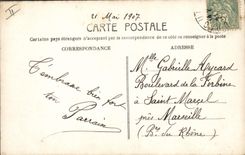 21 Mai 1907
CARTE POSTALE
Tous les pays étrangers n'acceptent pas la correspondance de ce côté se renseigner à la poste
CORRESPONDANCE
ADRESSE
T'embrasse bien fort
ton Parrain
Mlle Gabrielle Aycard
Boulevard de la Forbine
à Saint Marcel
près Marseille
(B. du Rhône)